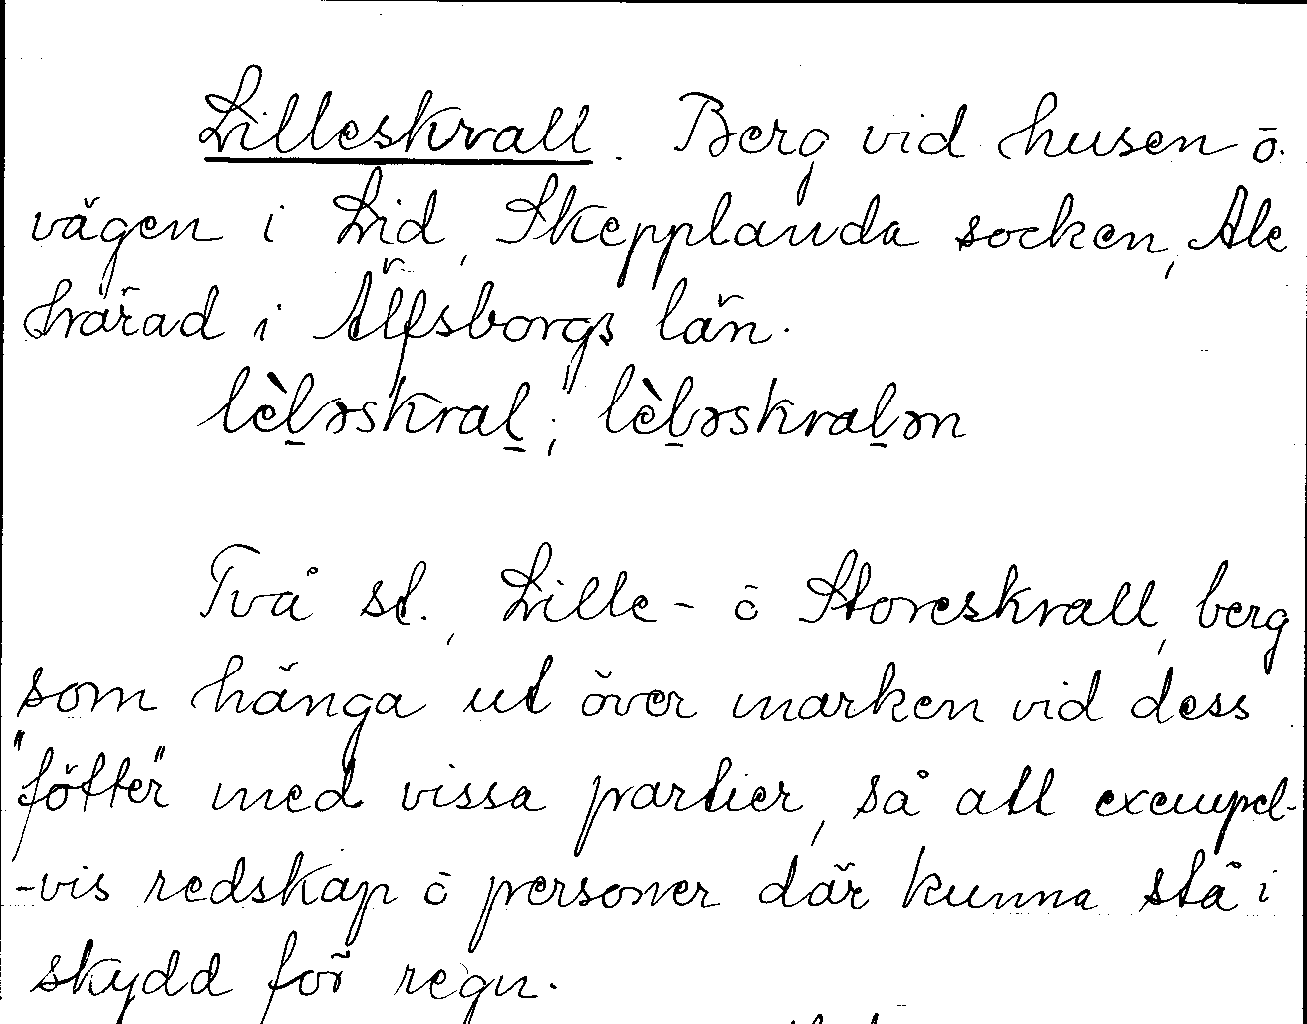 Lilleskrall. Berg vid husen ō.
vägen i Lid, Skepplanda socken, Ale
härad i Älfsborgs län.
lèḻəskraḻ; lèḻəskraḻən
Två st., Lille- ō Storeskrall, berg
som hänga ut över marken vid dess
"fötter" med vissa partier, så att exempel-
-vis redskap ō personer där kunna stå i
skydd för regn.